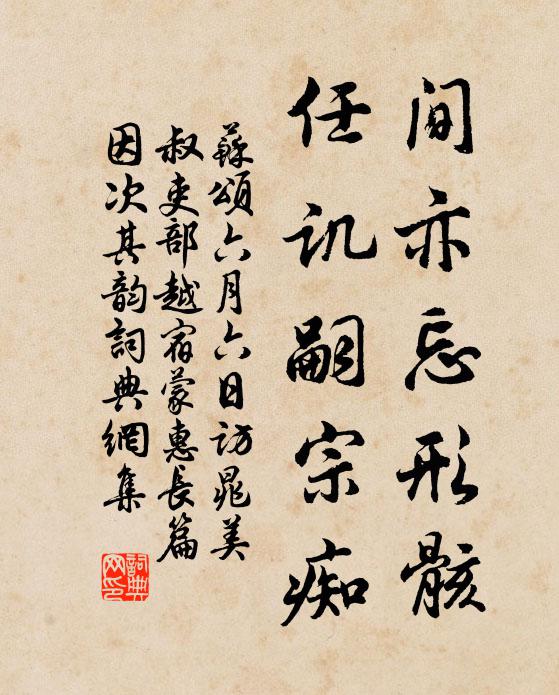 间亦忘形骸
任讥嗣宗痴
蘇頌六月六日访晁美
叔吏部越宿蒙惠長篇
因次其韵詞典網集
詞典
网印